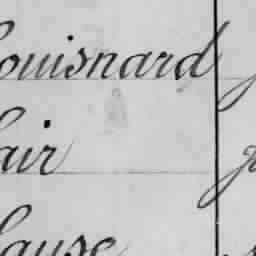 ouisnard
air
ause